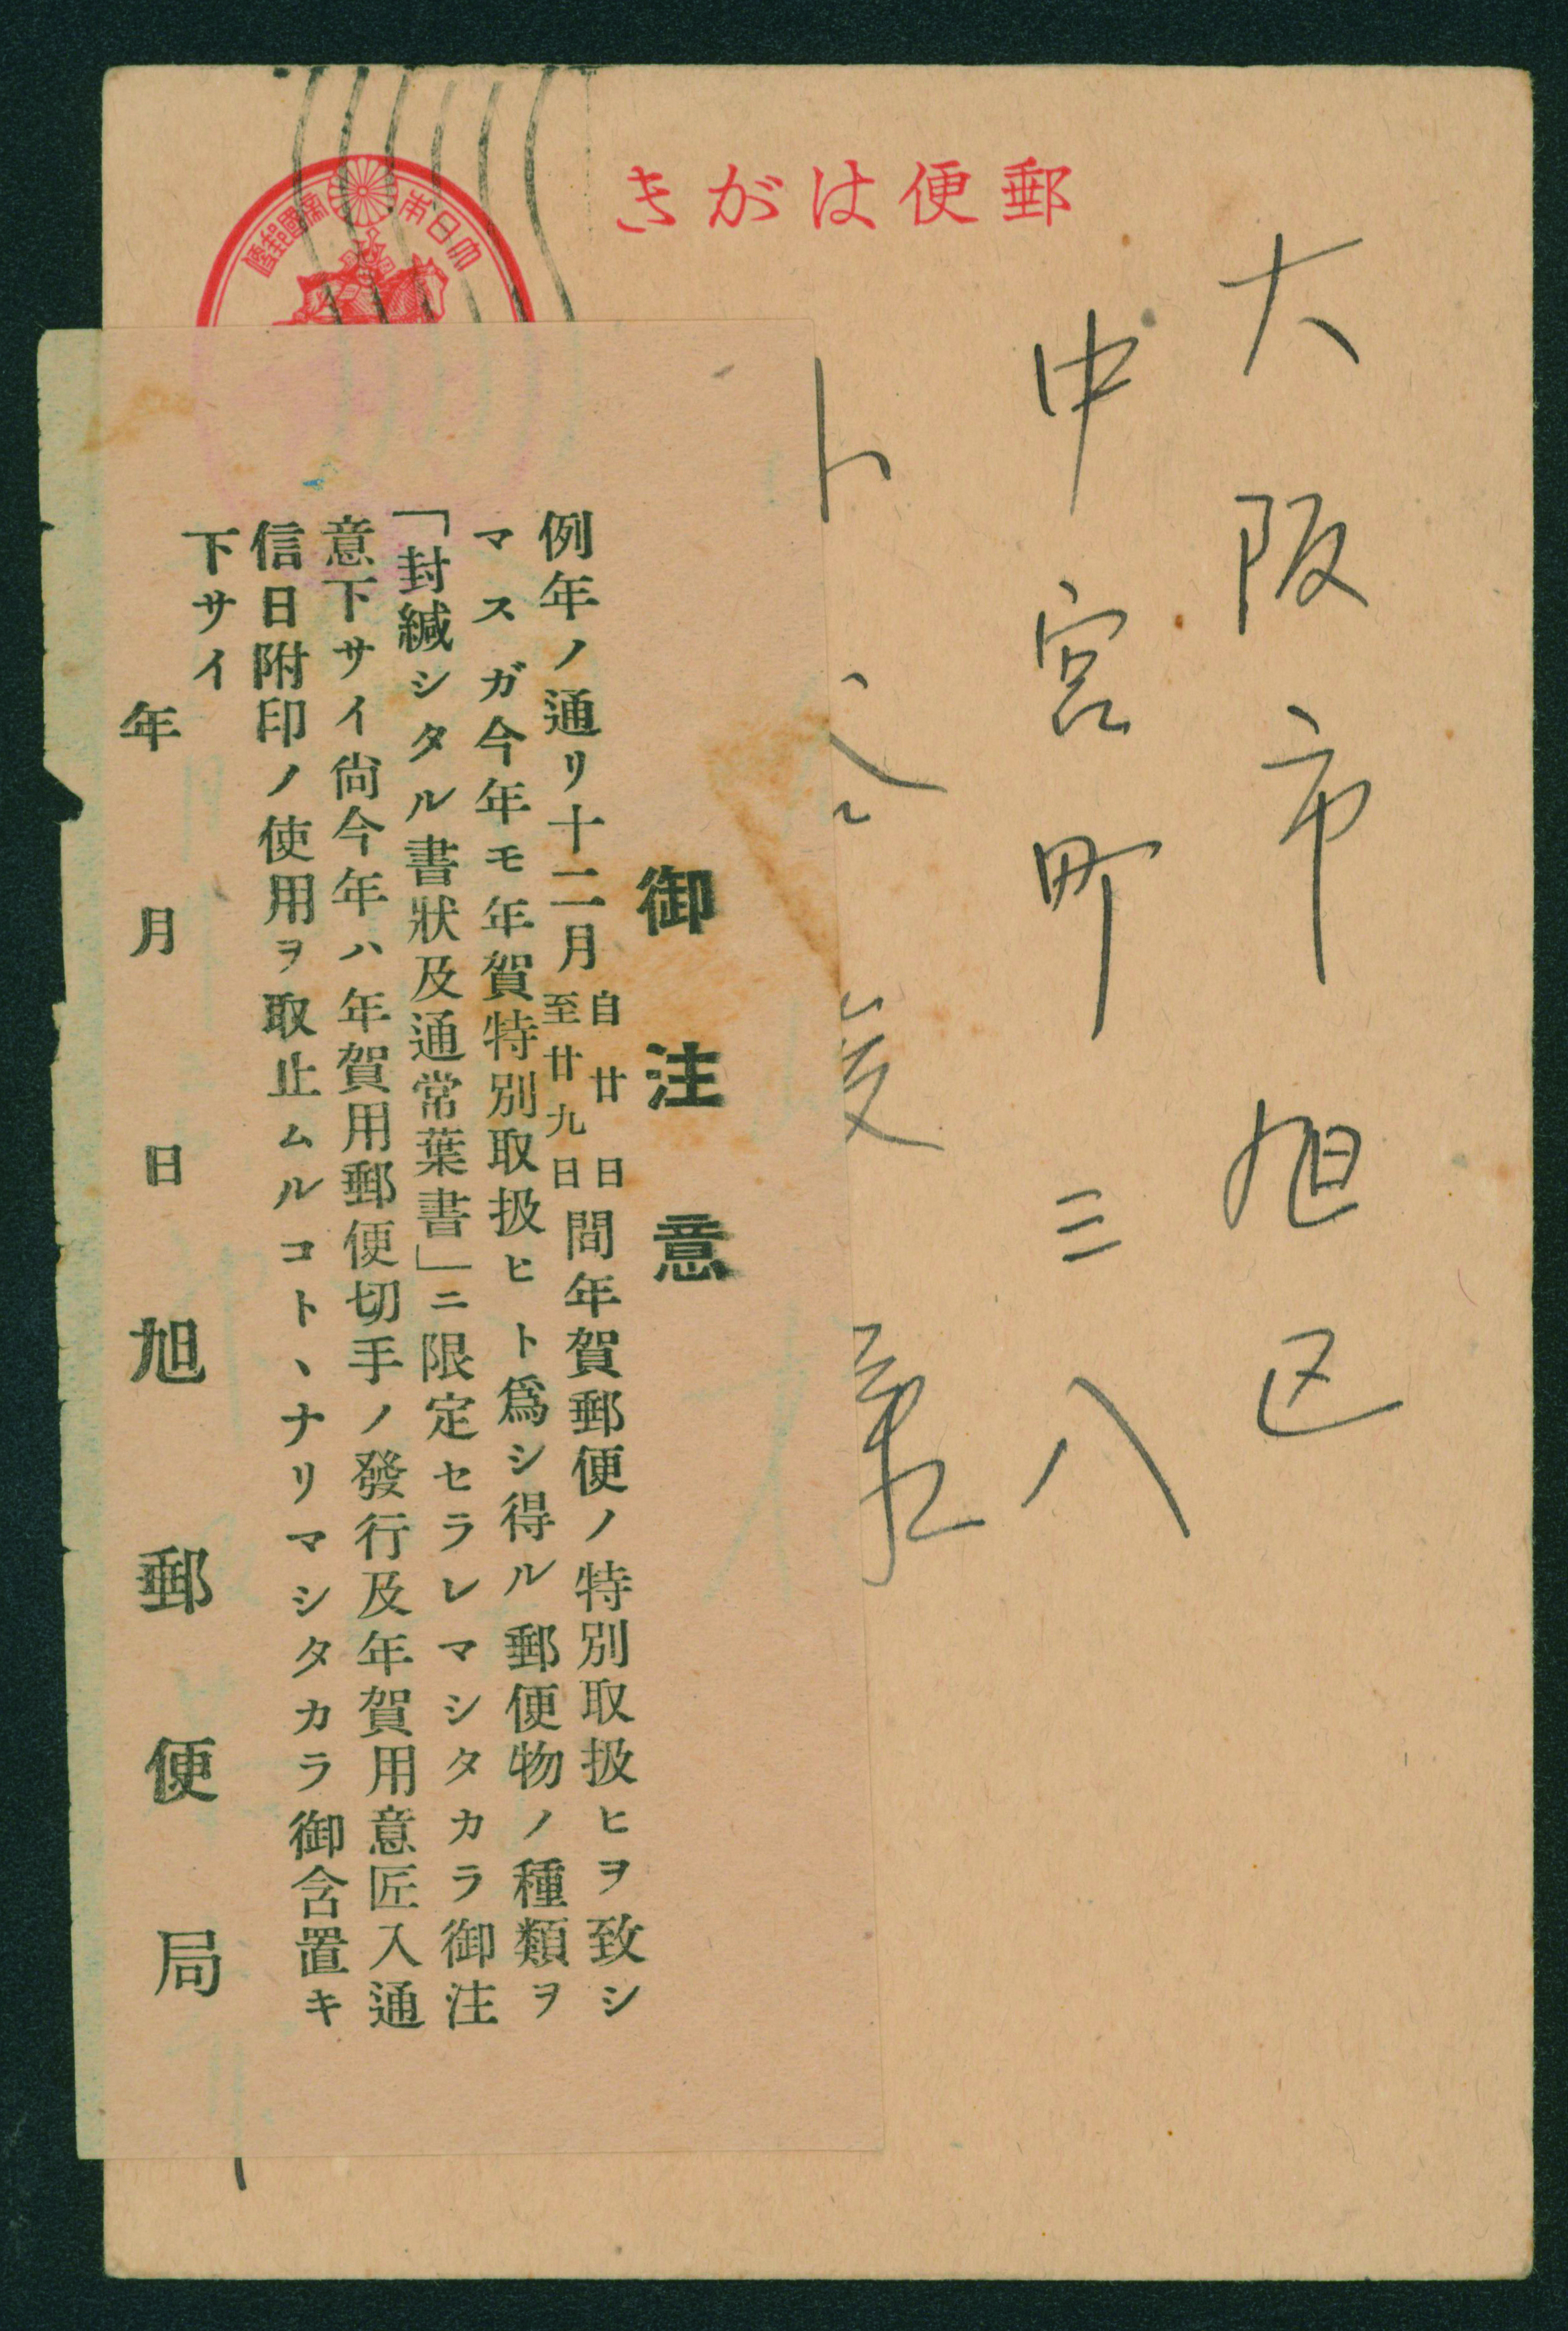 郵便はがき
大日本
帝國郵便
大阪市旭区
中宮町三八
御注意
例年ノ通リ十二月自廿日至廿九日間年賀郵便ノ特別取扱ヒヲ致シ
マスガ今年モ年賀特別取扱ヒト爲シ得ル郵便物ノ種類ヲ
「封緘シタル書狀及通常葉書」ニ限定セラレマシタカラ御注
意下サイ尙今年ハ年賀用郵便切手ノ發行及年賀用意匠入通
信日附印ノ使用ヲ取止ムルコトヽナリマシタカラ御含置キ
下サイ
年月日
旭郵便局